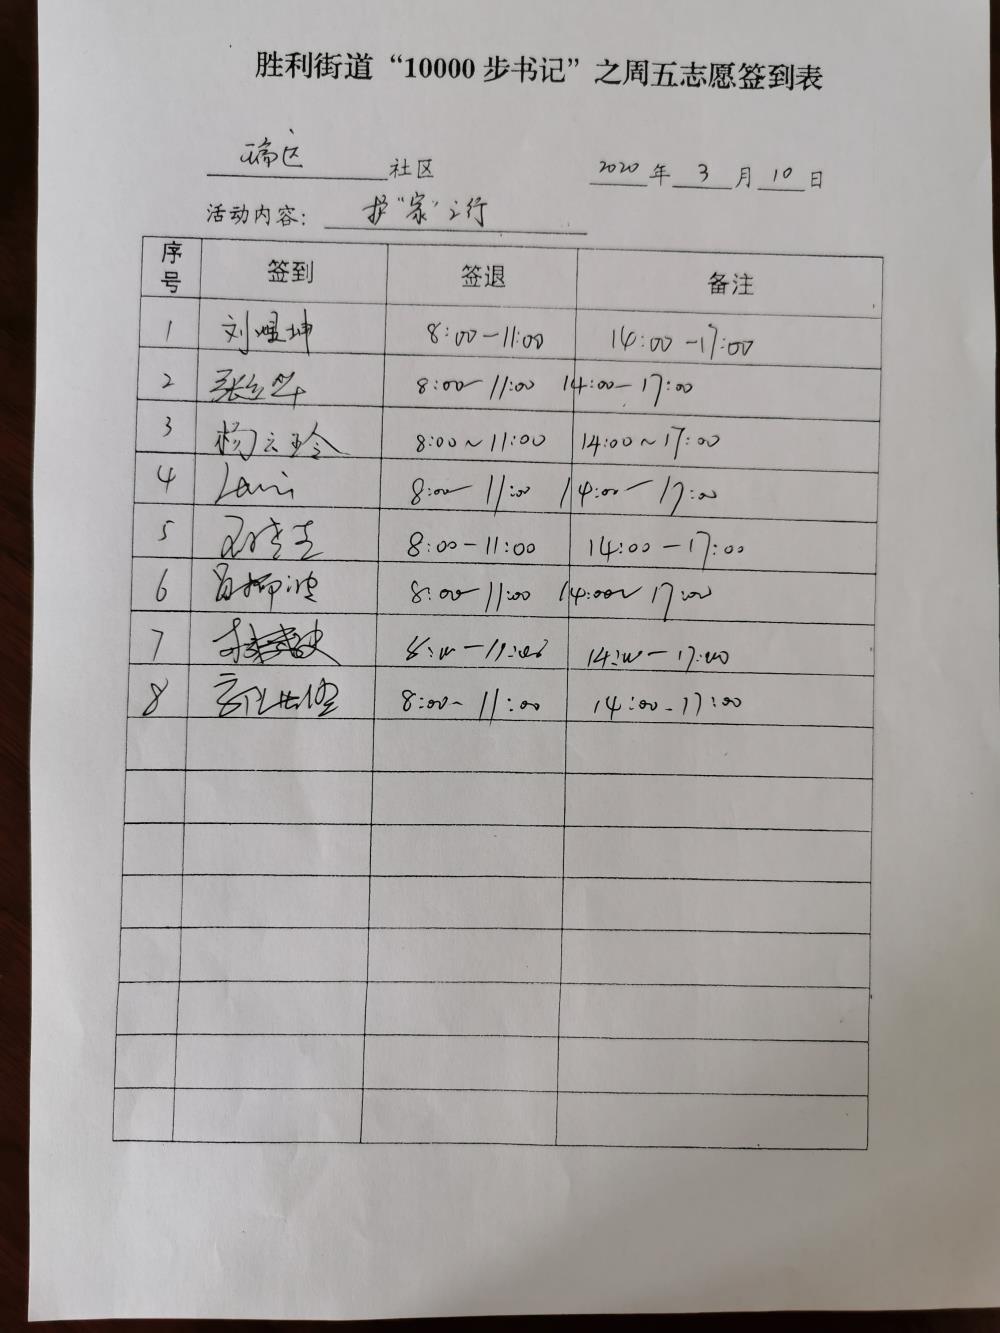 胜利街道“10000步书记”之周五志愿签到表
社区 2020年3月10日
活动内容：护“家”之行
序号 签到 签退 备注
1 8:00-11:00 14:00-17:00
2 8:00-11:00 14:00-17:00
3 杨云玲 8:00~11:00 14:00~17:00
4 8:00-11:00 14:00-17:00
5 8:00-11:00 14:00-17:00
6 8:00-11:00 14:00~17:00
7 8:00-11:00 14:00-17:00
8 8:00-11:00 14:00-17:00